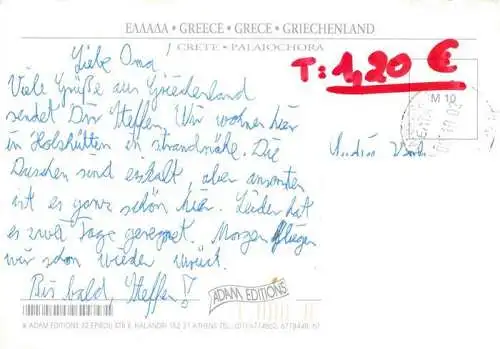 ΕΛΛΑΔΑ • GREECE • GRECE • GRIECHENLAND
CRETE • PALAIOCHORA
T: 1,20 €
M 10
Liebe Oma
Viele Grüße aus Griechenland
sendet Dir Steffen. Wir wohnen hier
in Holzhütten in strandnähe. Die
Duschen sind eiskalt, aber ansonsten
ist es ganz schön hier. Leider hat
es zwei Tage geregnet. Morgen fliegen
wir schon wieder zurück.
Bis bald, Steffen!
ADAM EDITIONS
ADAM EDITIONS 32 EPIROU STR. HALANDRI 152 31 ATHENS TEL.